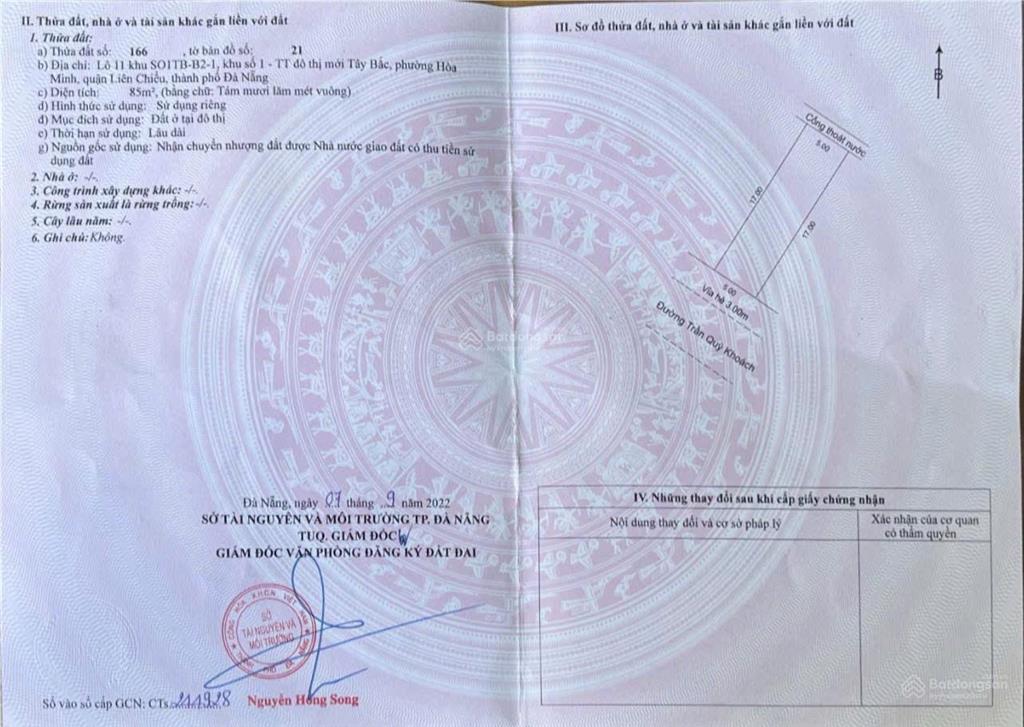 II. Thửa đất, nhà ở và tài sản khác gắn liền với đất
1. Thửa đất:
a) Thửa đất số: 166 , tờ bản đồ số: 21
b) Địa chỉ: Lô 11 khu SO1TB-B2-1, khu số 1 - TT đô thị mới Tây Bắc, phường Hòa
Minh, quận Liên Chiểu, thành phố Đà Nẵng
c) Diện tích: 85m², (bằng chữ: Tám mươi lăm mét vuông)
d) Hình thức sử dụng: Sử dụng riêng
đ) Mục đích sử dụng: Đất ở tại đô thị
e) Thời hạn sử dụng: Lâu dài
g) Nguồn gốc sử dụng: Nhận chuyển nhượng đất được Nhà nước giao đất có thu tiền sử
dụng đất
2. Nhà ở: -/-.
3. Công trình xây dựng khác: -/-.
4. Rừng sản xuất là rừng trồng: -/-.
5. Cây lâu năm: -/-.
6. Ghi chú: Không.
Đà Nẵng, ngày 07 tháng 9 năm 2022
SỞ TÀI NGUYÊN VÀ MÔI TRƯỜNG TP. ĐÀ NẴNG
TUQ. GIÁM ĐỐC
GIÁM ĐỐC VĂN PHÒNG ĐĂNG KÝ ĐẤT ĐAI
CỘNG HÒA X.H.C.N VIỆT NAM
SỞ
TÀI NGUYÊN VÀ
MÔI TRƯỜNG
THÀNH PHỐ ĐÀ NẴNG
Nguyễn Hồng Song
Số vào sổ cấp GCN: CTs
III. Sơ đồ thửa đất, nhà ở và tài sản khác gắn liền với đất
B
Cống thoát nước
5.00
17.00
17.00
5.00
Vỉa hè 3.00m
Đường Trần Quý Khoách
IV. Những thay đổi sau khi cấp giấy chứng nhận
Nội dung thay đổi và cơ sở pháp lý
Xác nhận của cơ quan
có thẩm quyền
Batdongsan
Batdongsan